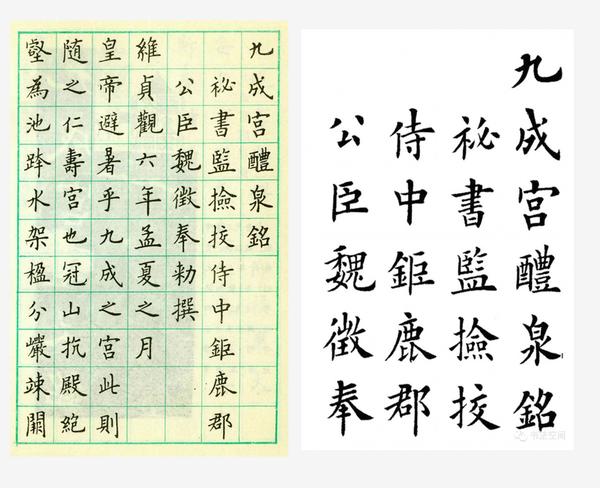 九成宫醴泉銘
祕書監撿挍侍中鉅鹿郡
公臣魏徵奉勑撰
維貞觀六年孟夏之月
皇帝避暑乎九成之宫此則
随之仁壽宫也冠山抗殿絕
壑為池跨水架楹分巖竦闕
九成宫醴泉銘
祕書監撿挍
侍中鉅鹿郡
公臣魏徵奉
书法空间